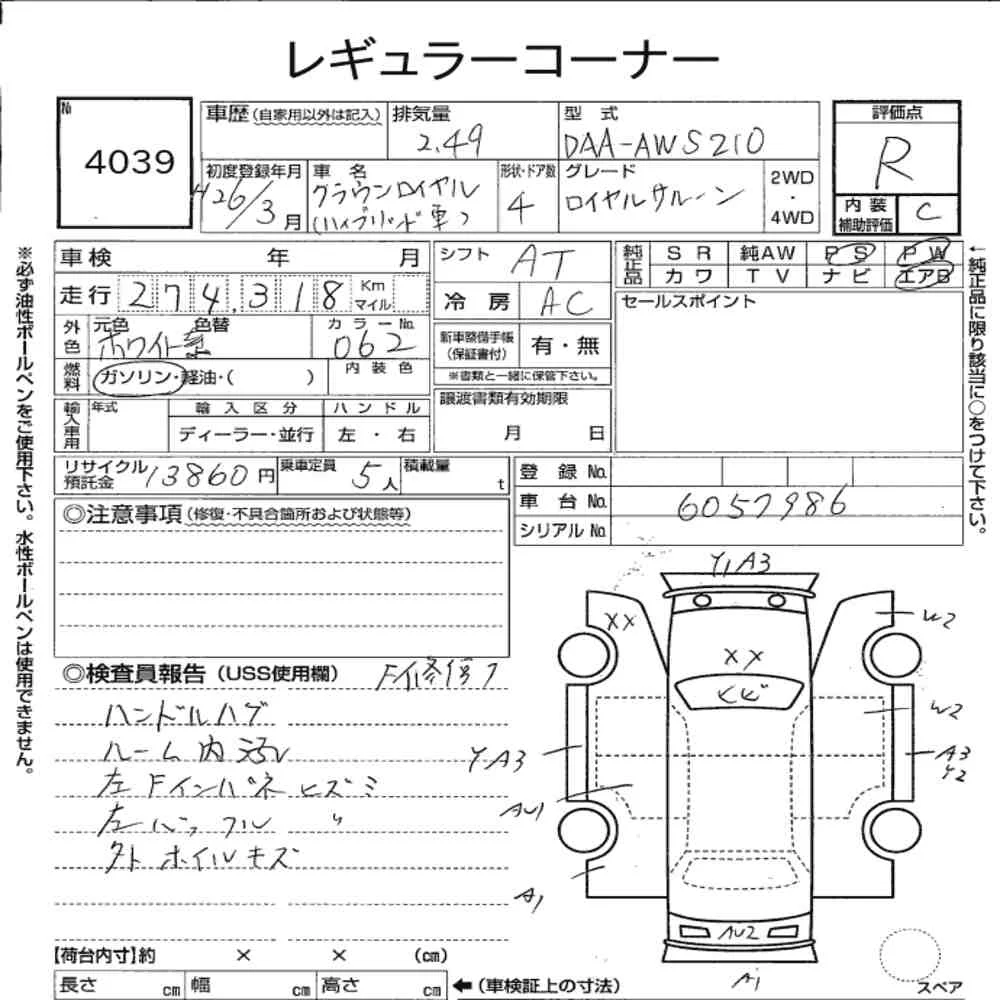 レギュラーコーナー
№ 4039
車歴(自家用以外は記入) 排気量 2.49 型式 DAA-AWS210
評価点 R
初度登録年月 H26/3月
車名 クラウンロイヤル
(ハイブリッド車)
形状・ドア数 4
グレード ロイヤルサルーン
2WD
・
4WD
内装補助評価 C
車検 年 月
シフト AT
純正品 SR 純AW PS PW
カワ TV ナビ エアB
走行 274,318 Km マイル
冷房 AC
セールスポイント
外色 元色 ホワイト 色替 カラーNo. 062
新車整備手帳(保証書付) 有・無
※書類と一緒に保管下さい。
燃料 ガソリン・軽油・( )
内装色
輸入車用 年式 輸入区分 ハンドル
ディーラー・並行 左・右
譲渡書類有効期限
月 日
リサイクル預託金 13860円 乗車定員 5人 積載量 t
登録No.
車台No. 6057986
シリアルNo.
◎注意事項(修復・不具合箇所および状態等)
◎検査員報告(USS使用欄)
ハンドルハゲ
ルーム内汚れ
左Fインパネ ヒズミ
左ハッフル 〃
外ホイルキズ
Y1 A3
XX
XX
ヒビ
W2
W2
Y A3
A3
Y2
AU1
A1
AU2
A1
【荷台内寸】約 × × (cm)
長さ cm 幅 cm 高さ cm
←(車検証上の寸法)
スペア
※必ず油性ボールペンをご使用下さい。水性ボールペンは使用できません。
←純正品に限り該当に○をつけて下さい。